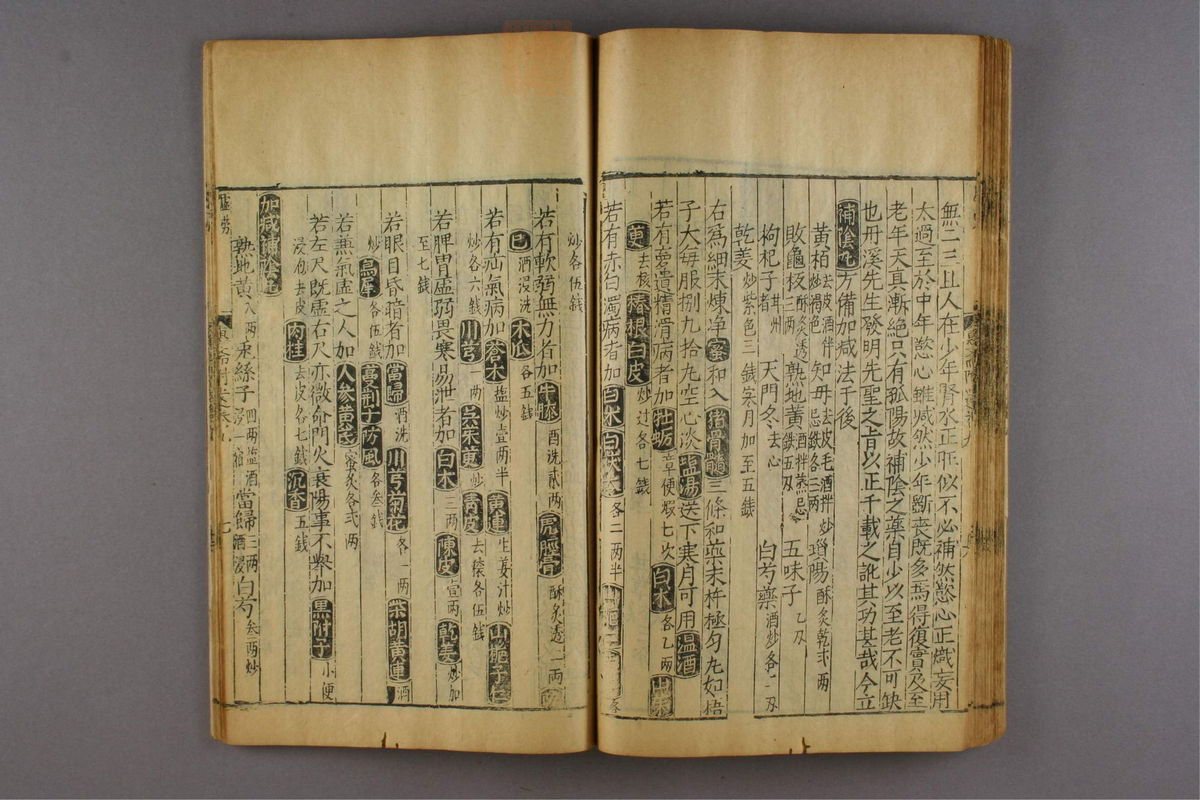 無一二且人在少年腎水正旺似不必補然慾心正熾妄用
太過至於中年慾心雖減然少年斲喪既多焉得復實及至
老年天真漸絕只有孤陽故補陰之藥自少以至老不可缺
也丹溪先生發明先聖之旨以正千載之訛其功甚哉今立
補陰丸方備加减法于後
黃柏去皮酒伴炒褐色 知母去皮毛酒拌炒忌鉄各三兩 瑣陽酥炙乾弍兩
敗龜板酥炙透三兩 熟地黄酒拌蒸忌鉄五刄 五味子乙刄
枸杞子 天門冬去心 白芍藥酒炒各二刄
乾姜炒紫色三錢寒月加至五錢
右為細末煉净蜜和入猪骨髓三條和藥末杵極匀丸如梧
子大每服捌九拾九空心淡塩湯送下寒月可用温酒
若有夢遺精滑病者加牡蠣童便煆七次白术各乙兩山茱
萸去核椿根白皮炒各七錢
若有赤白濁病者加白术白茯苓各二兩半
炒各伍錢
若有軟弱無力者加牛膝酒洗貳兩虎脛骨酥炙透一兩防
巳酒浸洗木瓜各五錢
若有疝氣病加蒼术塩炒壹兩半黄連生姜汁炒山梔子仁
炒各六錢川芎一兩吳茱萸炒青皮去穣各伍錢
若脾胃虚弱畏寒易泄者加白术三兩陳皮壹兩乾姜炒加
至七錢
若眼目昏暗者加當歸酒洗川芎菊花各一兩柴胡黄連酒
炒烏犀各伍錢蔓荆子防風各叁錢
若兼氣虚之人加人參黄芪蜜炙各弍兩
若左尺既虚右尺亦微命門火衰陽事不舉加黒附子小便
浸泡去皮肉桂去皮各七錢沉香五錢
加减補陰丸
熟地黄八兩兎絲子四兩塩酒浸一宿當歸三兩酒浸白芍叁兩炒